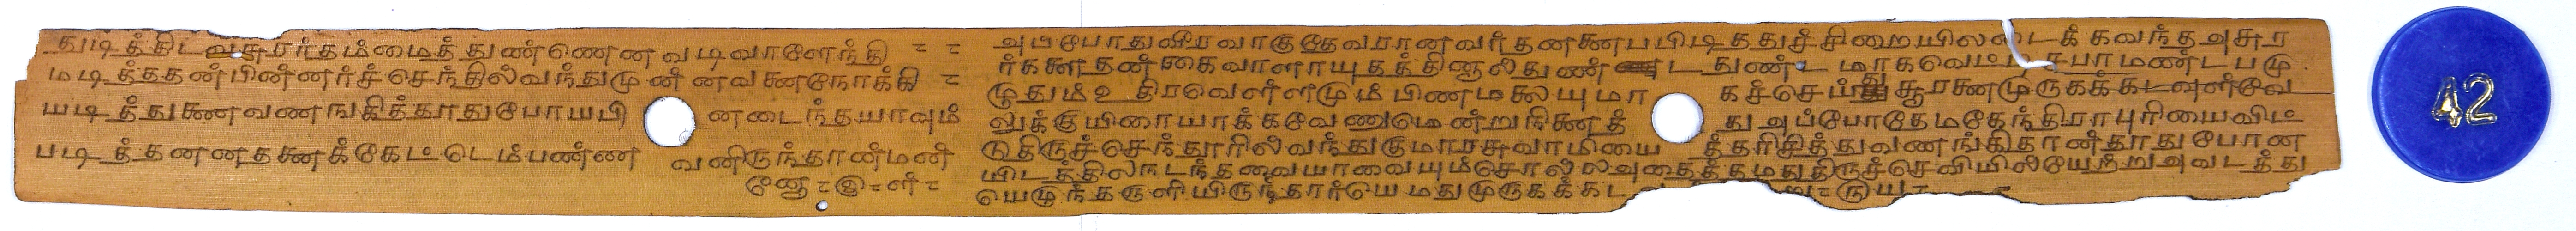 துடித்திடவசுரர்தம்மைத்துண்ணென வடிவாளேந்தி
மடித்ததன்பின்னர்ச்செந்தில்வந்துமுன்னவனைநோக்கி
யடித்துணைவணங்கித்தூதுபோயபி னடைந்தயாவும்
படித்தனனதனைக்கேட்டெம்பண்ண வனிருந்தான்மன்
னோ
அப்போதுவீரவாகுதேவரானவர்தனைப்பிடித்துச்சிறையிலடைக்கவந்தஅசுர
ர்களைதன்கைவாளாயுதத்தினால்துண்ட துண்ட மாகவெட்டி சபாமண்டபமு
முதும்உதிரவெள்ளமும்பிணமலையுமா கச்செய்து சூரனைமுருகக்கடவுள்வே
லுக்குயிரையாக்கவேணுமென்றுநினைத் துஅப்போதேமகேந்திராபுரியைவிட்
டுதிருச்செந்தூரில்வந்துகுமாரசுவாமியை த்தரிசித்துவணங்கிதான்தூதுபோன
யிடத்தில்நடந்தவையாவையும்சொல்லஅதைத்தமதுதிருச்செவியில்யேற்றுஅவடத்து
யெழுந்தருளியிருந்தார்யெமதுமுருகக்கட
42